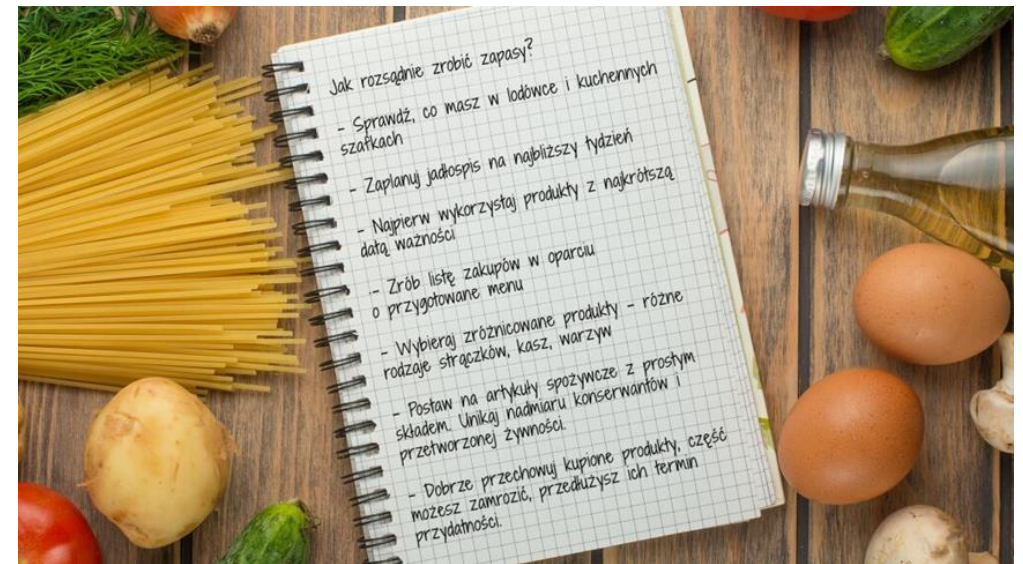 Jak rozsądnie zrobić zapasy?
- Sprawdź, co masz w lodówce i kuchennych
szafkach
- Zaplanuj jadłospis na najbliższy tydzień
- Najpierw wykorzystaj produkty z najkrótszą
datą ważności
- Zrób listę zakupów w oparciu
o przygotowane menu
- Wybieraj zróżnicowane produkty - różne
rodzaje strączków, kasz, warzyw
- Postaw na artykuły spożywcze z prostym
składem. Unikaj nadmiaru konserwantów i
przetworzonej żywności.
- Dobrze przechowuj kupione produkty, część
możesz zamrozić, przedłużysz ich termin
przydatności.